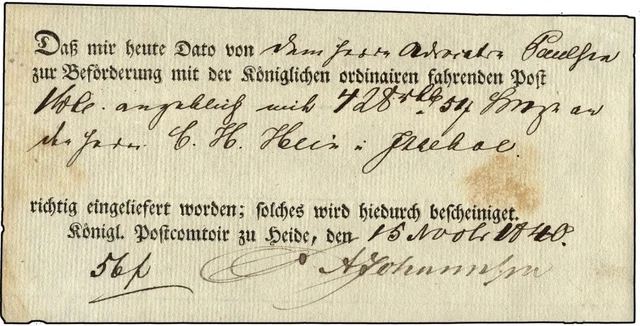 Daß mir heute Dato von dem Herrn Advocaten Paulsen
zur Beförderung mit der Königlichen ordinairen fahrenden Post
angeblich mit 428 rbt 54 an
den Herrn C. H. Hein in Itzehoe
richtig eingeliefert worden; solches wird hiedurch bescheiniget.
Königl. Postcomtoir zu Heide, den 15 Novbr 1840.
56 f AJohannsen